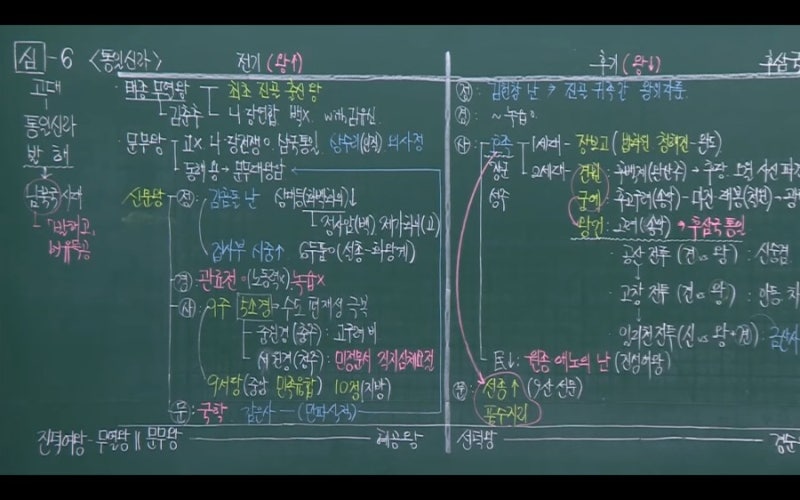 심-6 <통일신라>
전기 (왕↑)
고대
통일신라
발해
남북국시대
「발해고」
유득공
태종 무열왕 최초 진골 출신 왕
김춘추 나·당연합 백X with 김유신
문무왕 고X 나·당전쟁 삼국통일 상수리(인질) 외사정
신문왕
정: 김흠돌 난 상대등(화백회의)↓
집사부 시중↑ 6두품(설총-화왕계)
경: 관료전 (노동력X) 녹읍X
사: 9주 5소경→수도 편재성 극복
중원경(충주): 고구려비
서원경(청주): 민정문서
9서당(중앙 민족융합) 10정(지방)
문: 국학 감은사 (만파식적)
진덕여왕-무열왕 || 문무왕 혜공왕
후기 (왕↓)
후삼국
정: 김헌창 난 → 진골 귀족간 왕위쟁탈
경: ~녹읍
사: 호족 1세대 - 장보고 청해진-완도)
장군 2세대 견훤 후백제(완산주)
성주 궁예 후고구려(송악) - 마진 태봉(철원)
왕건: 고려(송악) → 후삼국 통일
공산 전투 (견 vs 왕): 신숭겸
고창 전투 (견 vs 왕): 안동
일리천 전투 (신 vs 왕+견): 금산사
민↓: 원종 애노의 난 (진성여왕)
문: 선종↑ (9산 선문)
풍수지리
선덕왕